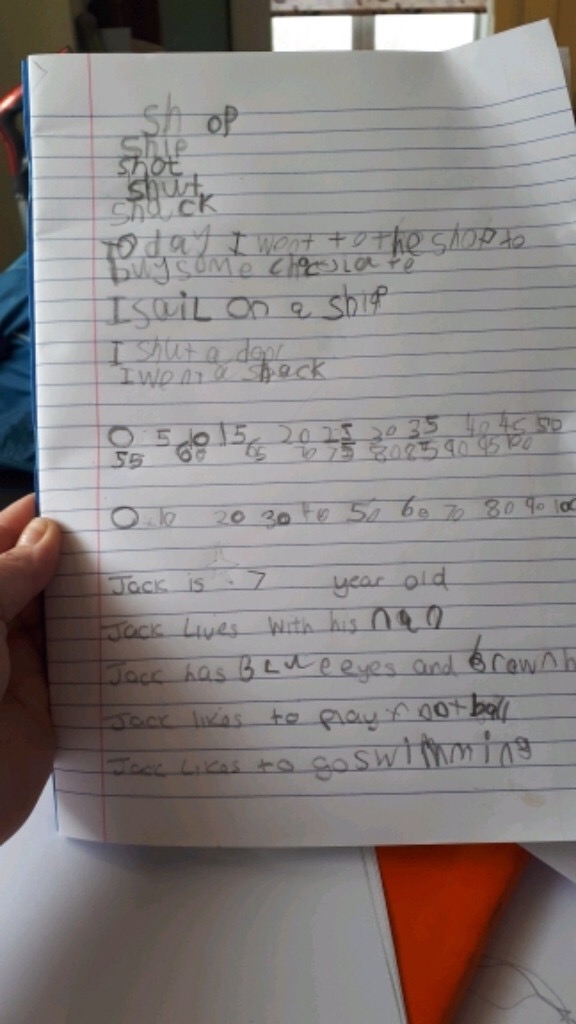 sh op
ship
shot
shut
shack
Today I went to the shop to
buy some
I sail on a ship
I shut a door
I a shack
0 5 10 15 20 25 30 35 40 45 50
55 60 65 70 75 80 85 90 95 100
0 10 20 30 40 50 60 70 80 90 100
Jack is 7 year old
Jack Lives with his nan
Jack has BLUe eyes and brown h
Jack likes to play football
Jack Likes to go swimming